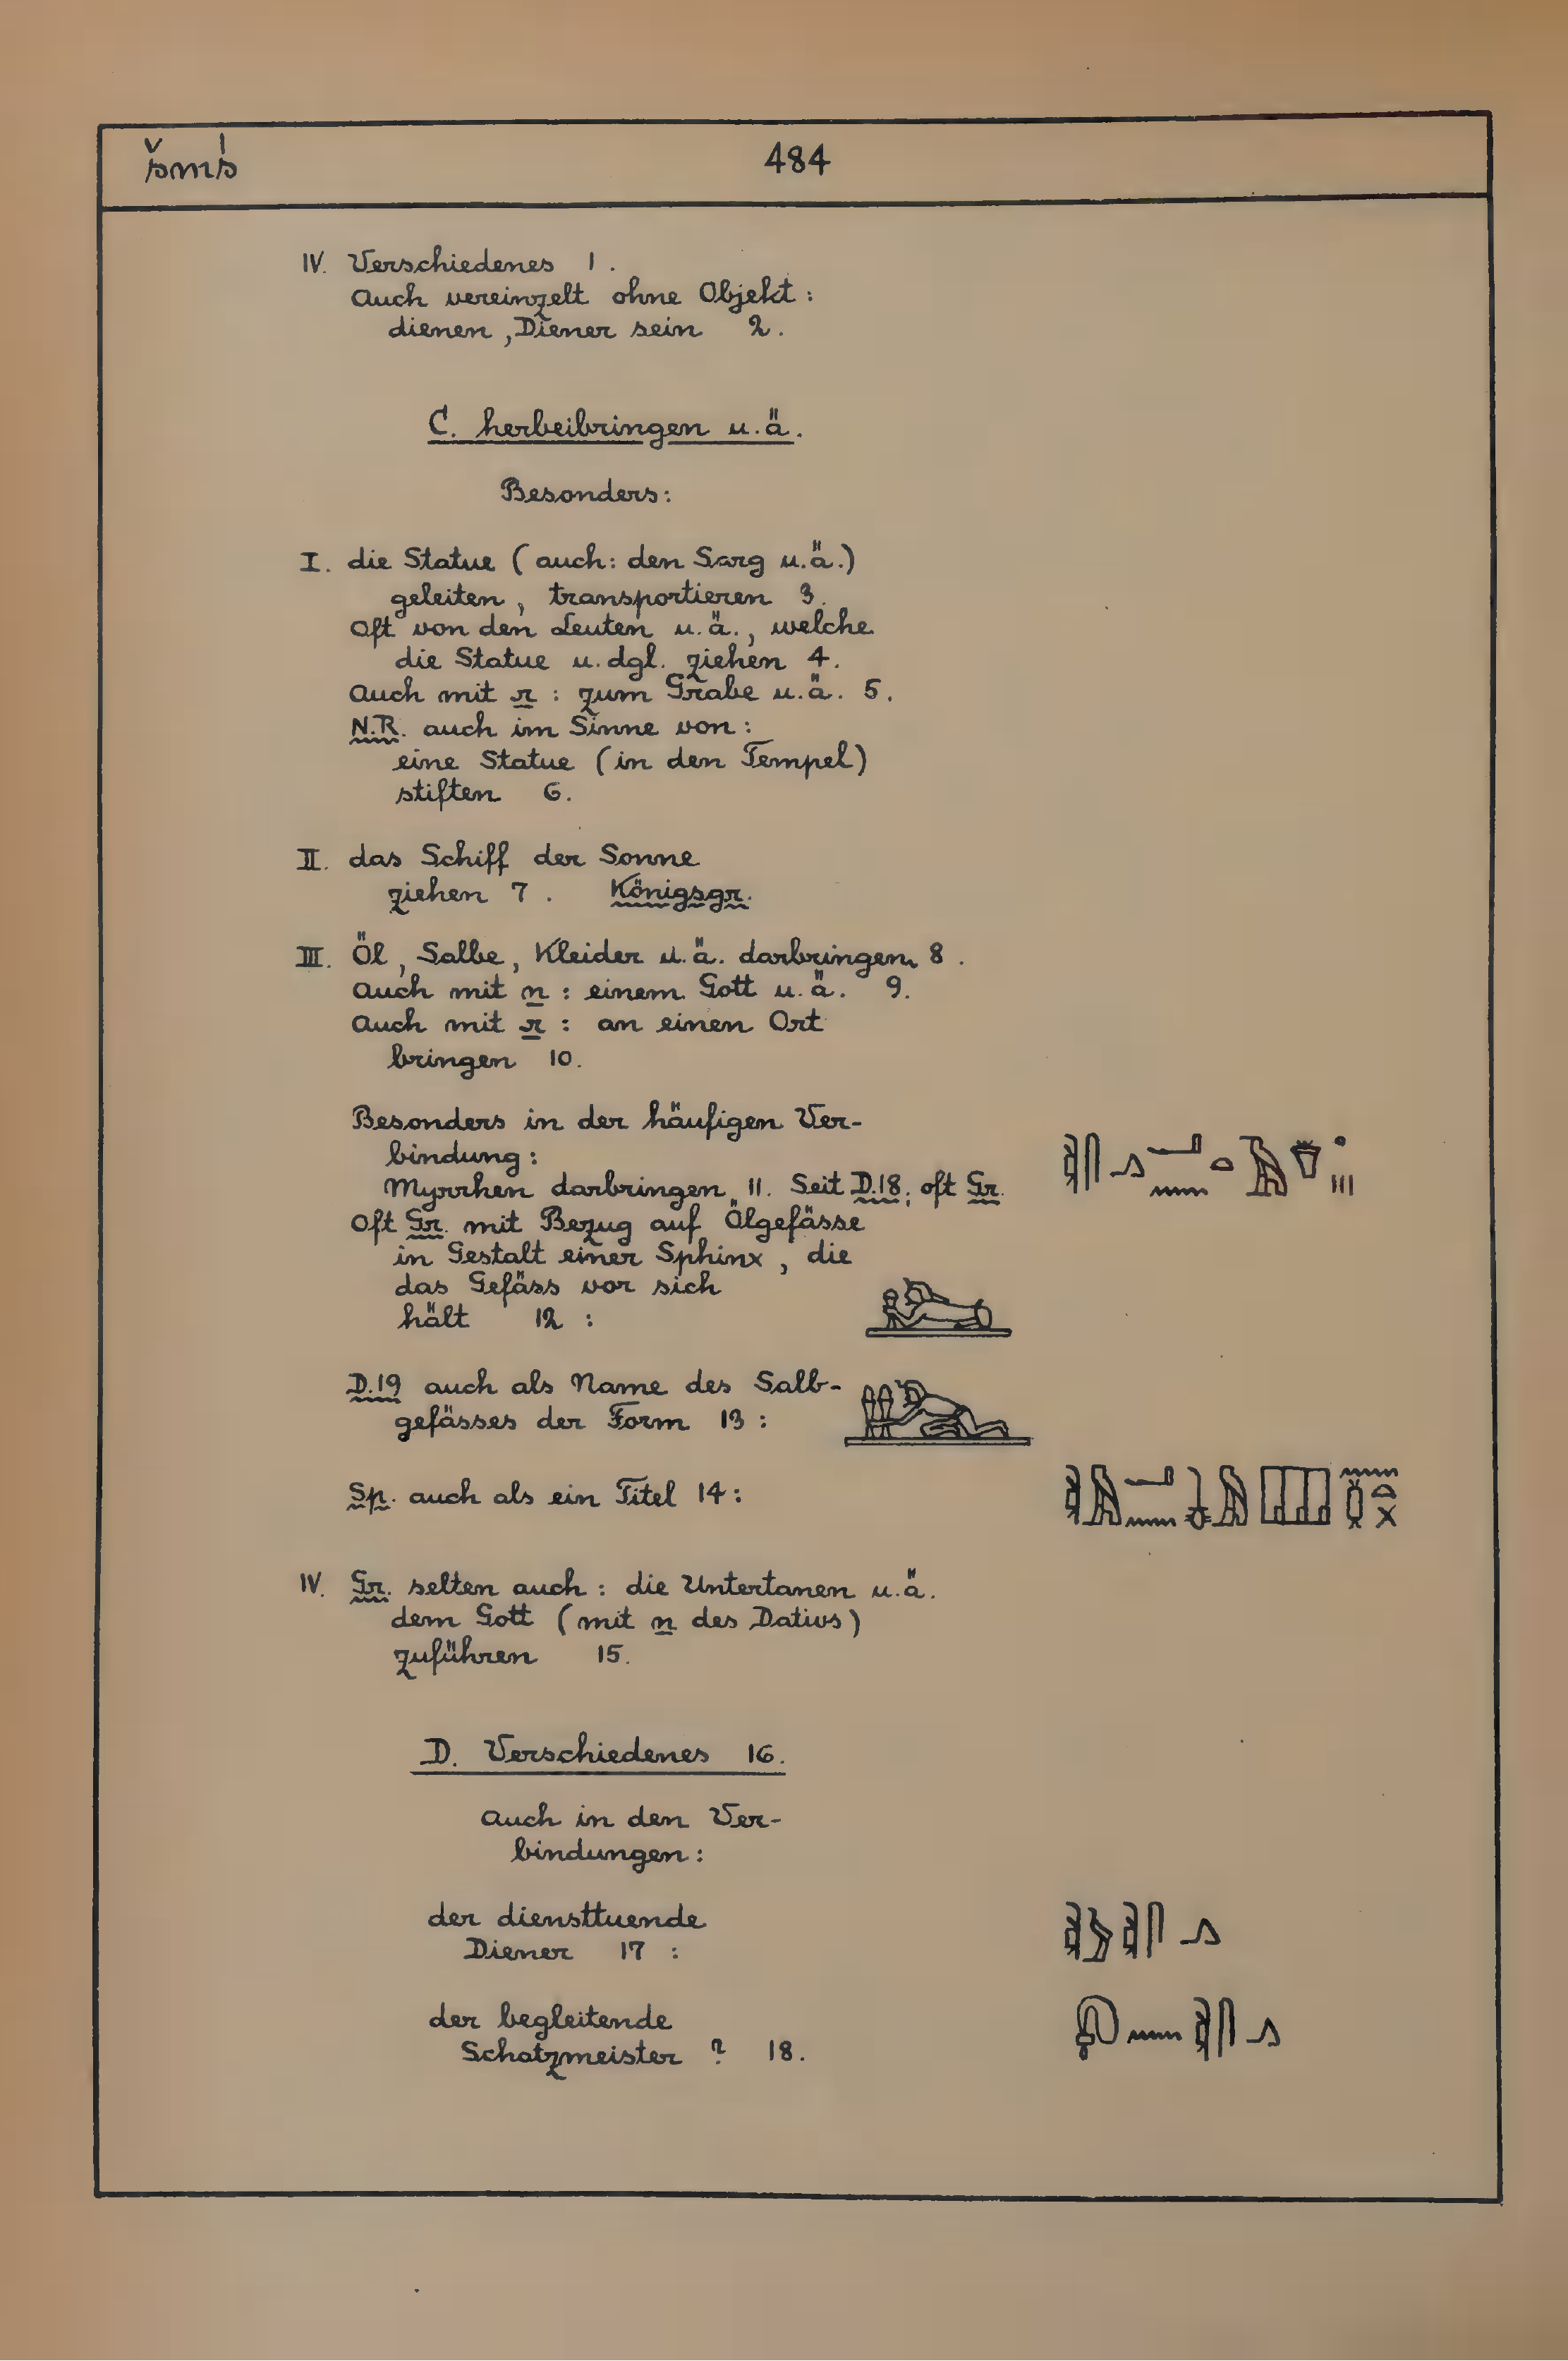 šmś
484
IV. Verschiedenes 1.
Auch vereinzelt ohne Objekt:
dienen, Diener sein 2.
C. herbeibringen u.ä.
Besonders:
I. die Statue (auch: den Sarg u.ä.)
geleiten, transportieren 3.
Oft von den Leuten u.ä., welche
die Statue u.dgl. ziehen 4.
Auch mit r: zum Grabe u.ä. 5.
N.R. auch im Sinne von:
eine Statue (in den Tempel)
stiften 6.
II. das Schiff der Sonne
ziehen 7. Königsgr.
III. Öl, Salbe, Kleider u.ä. darbringen 8.
Auch mit n: einem Gott u.ä. 9.
Auch mit r: an einen Ort
bringen 10.
Besonders in der häufigen Ver-
bindung:
Myrrhen darbringen 11. Seit D.18; oft Gr.
Oft Gr. mit Bezug auf Ölgefässe
in Gestalt einer Sphinx, die
das Gefäss vor sich
hält 12:
D.19 auch als Name des Salb-
gefässes der Form 13:
Sp. auch als ein Titel 14:
IV. Gr. selten auch: die Untertanen u.ä.
dem Gott (mit n des Dativs)
zuführen 15.
D. Verschiedenes 16.
Auch in den Ver-
bindungen:
der diensttuende
Diener 17:
der begleitende
Schatzmeister ? 18.